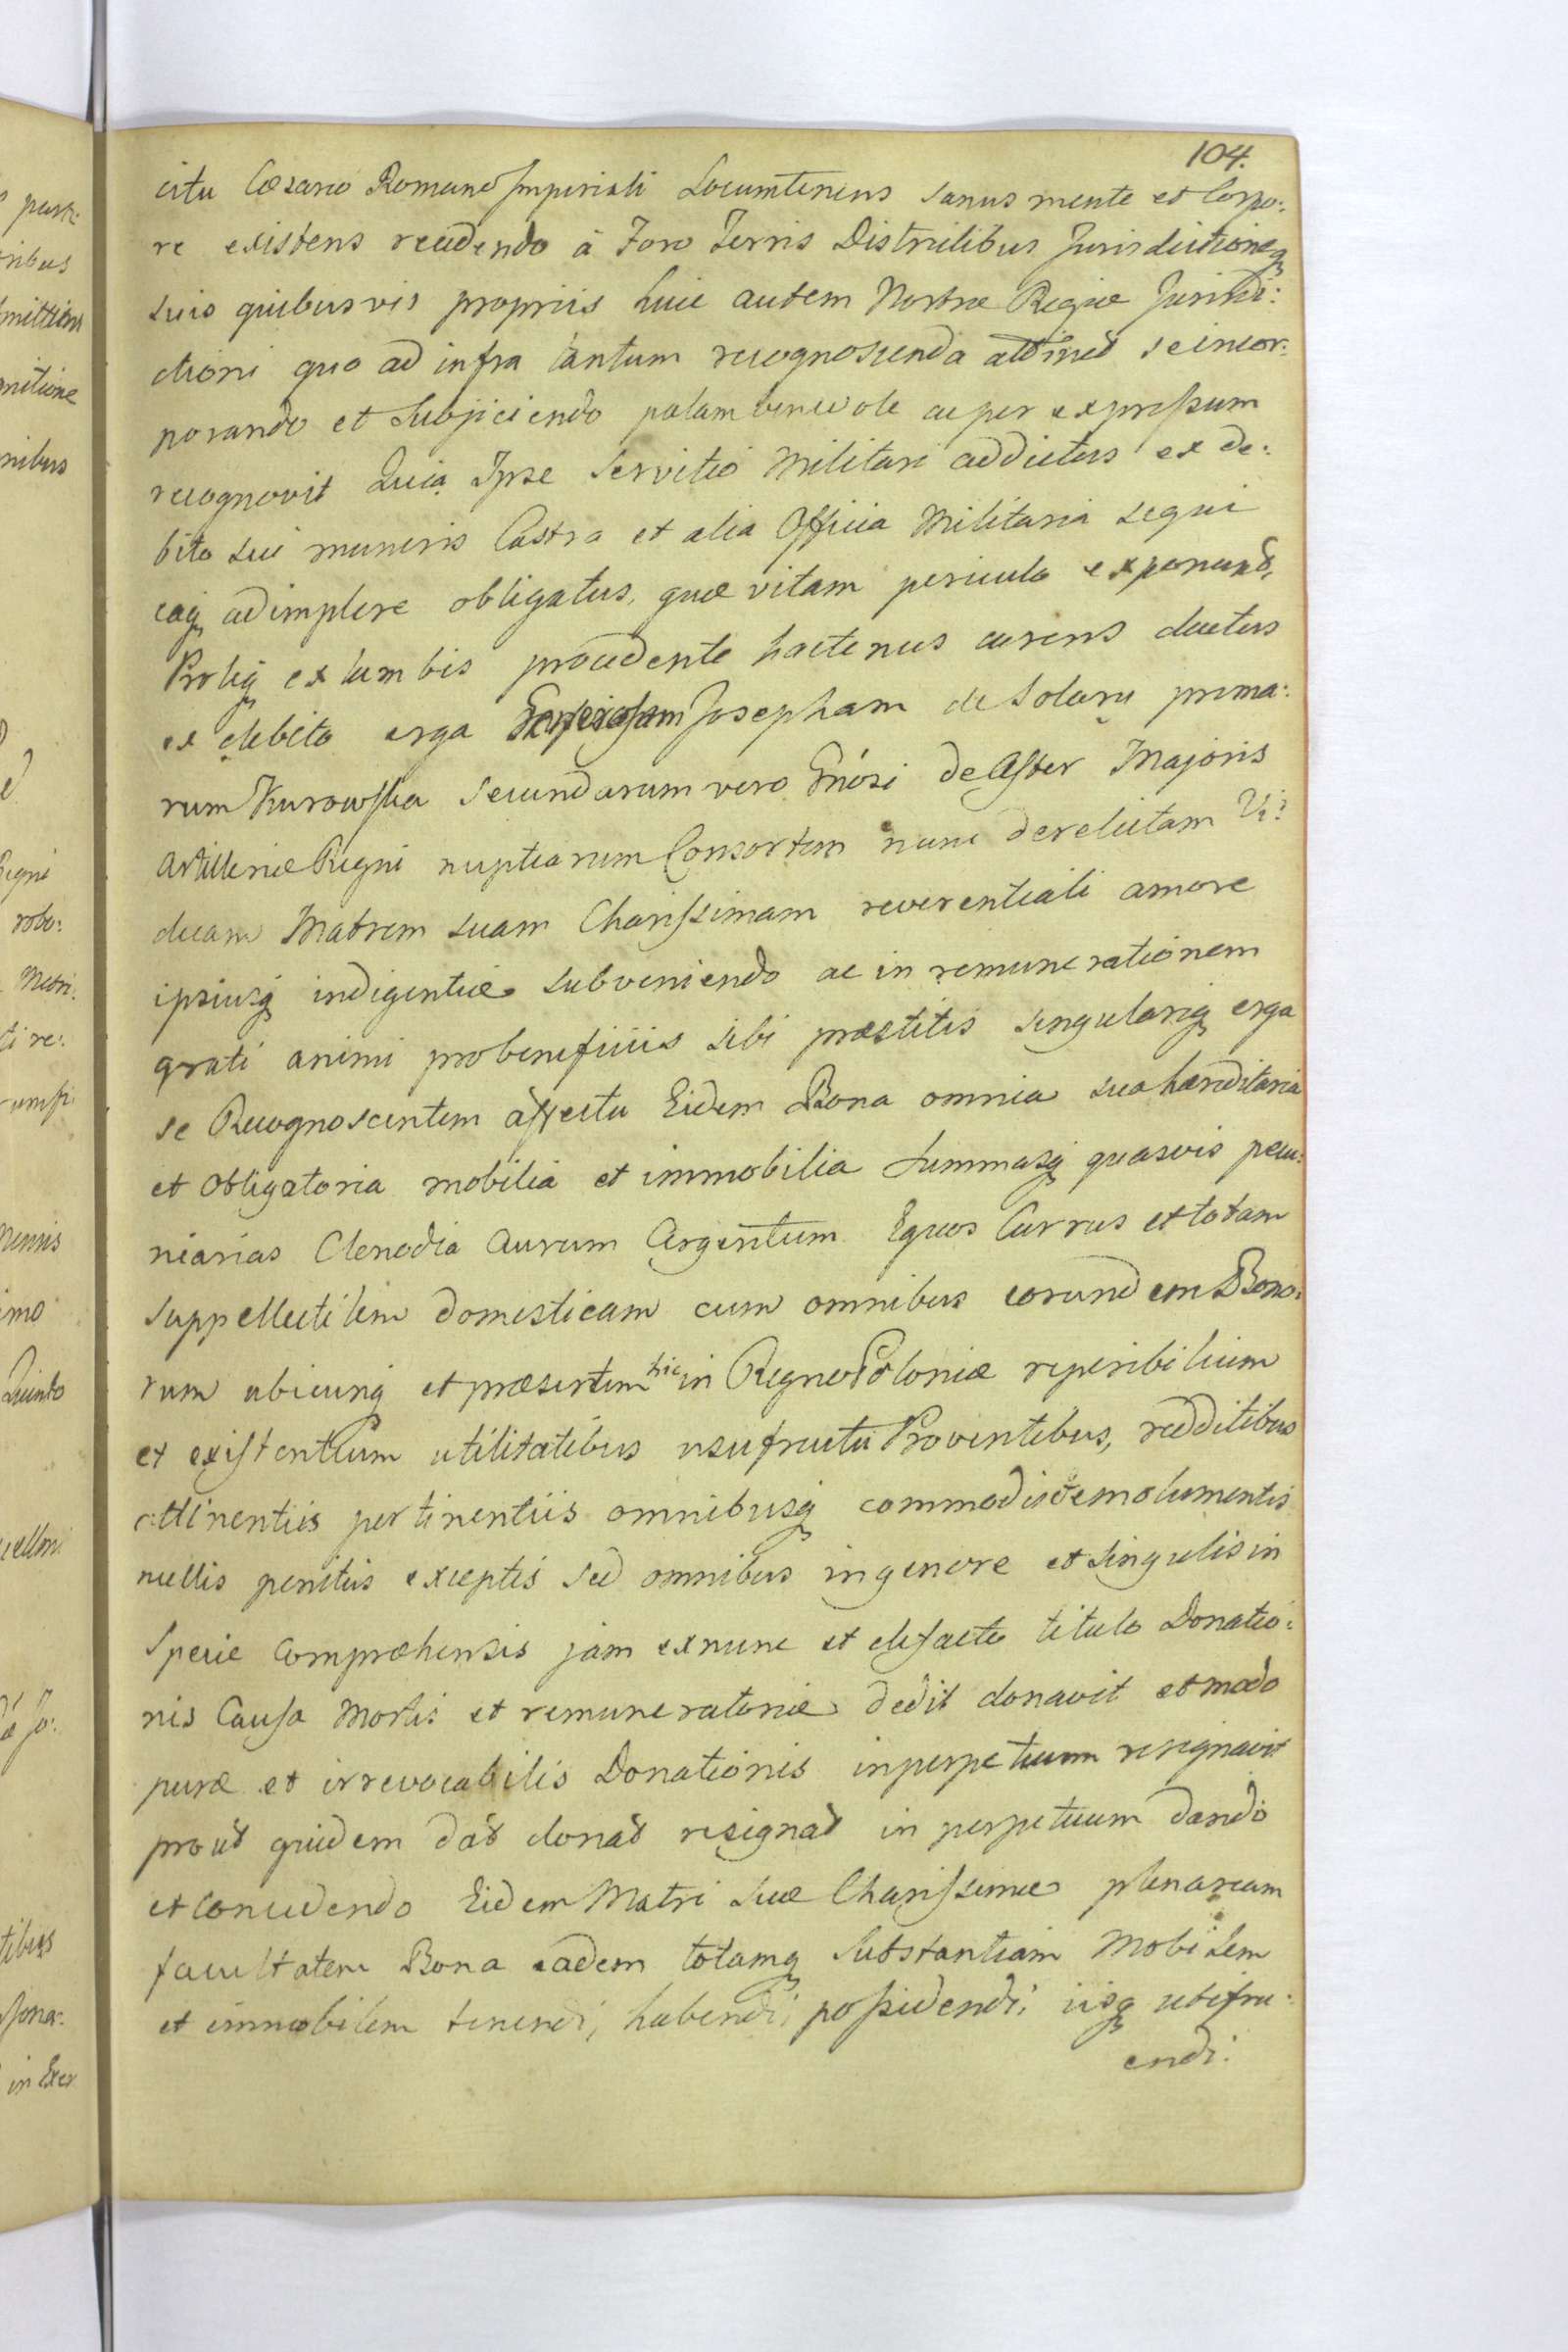 104.
citu Cæsareo Romano Imperiali Locumtenens sanus mente et Corpo:
re existens recedendo à Foro Terris Districtibus Jurisdictioneq
suis quibusvis propriis huic autem Nostræ Regiæ Jurisdi:
ctioni quo ad infra tantum recognoscenda attinet se incor:
porando et Subjiciendo palam benevole ac per expressum
recognovit Quia Ipse Servitio Militari addictus ex de:
bito sui muneris Castra et alia Officia Militaria sequi
eaq adimplere obligatus, quæ vitam periculo exponunt,
Proleq ex lumbis procedente hactenus carens ductus
ex debito erga Josepham de Solary prima:
rum Kurowska Secundarum vero Gnosi de Aster Majoris
Artilleriæ Regni nuptiarum Consortem nunc derelictam Vi:
duam Matrem suam Charissimam reverentiali amore
ipsiusq indigentiæ subveniendo ac in remunerationem
grati animi pro beneficiis sibi præstitis singulariq erga
se Recognoscentem affectu Eidem Bona omnia sua hæreditaria
et Obligatoria mobilia et immobilia Summasq quasvis pecu:
niarias Clenodia Aurum Argentum Equos Currus et totam
suppellectilem domesticam cum omnibus eorundem Bono:
rum ubicunq et præsertim hic in Regno Poloniæ reperibilium
et existentium utilitatibus usufructu Proventibus, redditibus
attinentiis pertinentiis omnibusq commodis et emolumentis
nullis penitus exceptis sed omnibus in genere et singulis in
Specie compræhensis jam exnunc et defacto titulo Donatio:
nis Causa Mortis et remuneratoriæ dedit donavit et modo
puræ et irrevocabilis Donationis inperpetuum resignavit
prout quidem dat donat resignat in perpetuum dando
et concedendo Eidem Matri suæ Charissimæ plenariam
facultatem Bona eadem totamq Substantiam Mobilem
et immobilem tenendi, habendi, possidendi, iisq utifru:
endi: